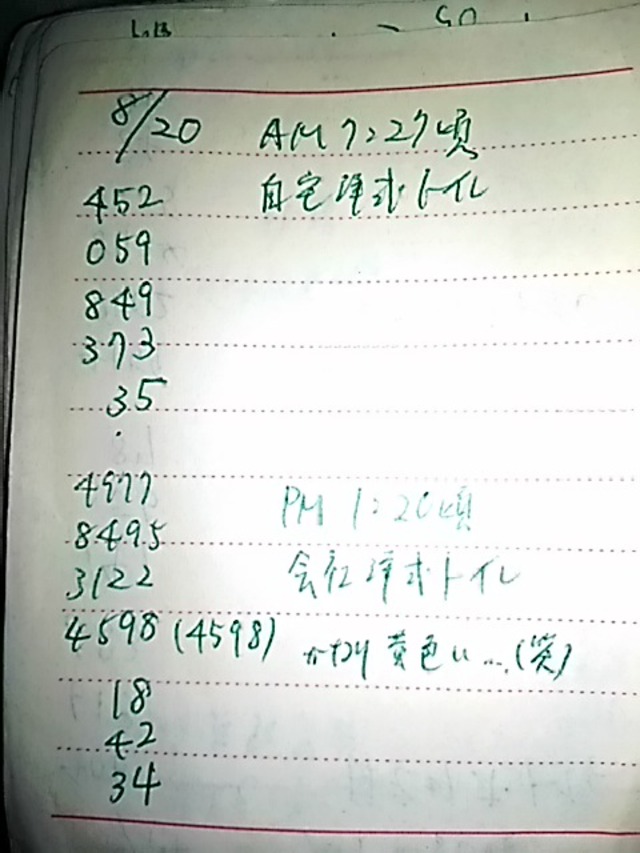 8/20 AM 7:27頃
452 自宅洋式トイレ
059
849
373
35
.
4977
8495 PM 1:20頃
3122 会社洋式トイレ
4598 (4598) かなり黄色い…(笑)
18
42
34